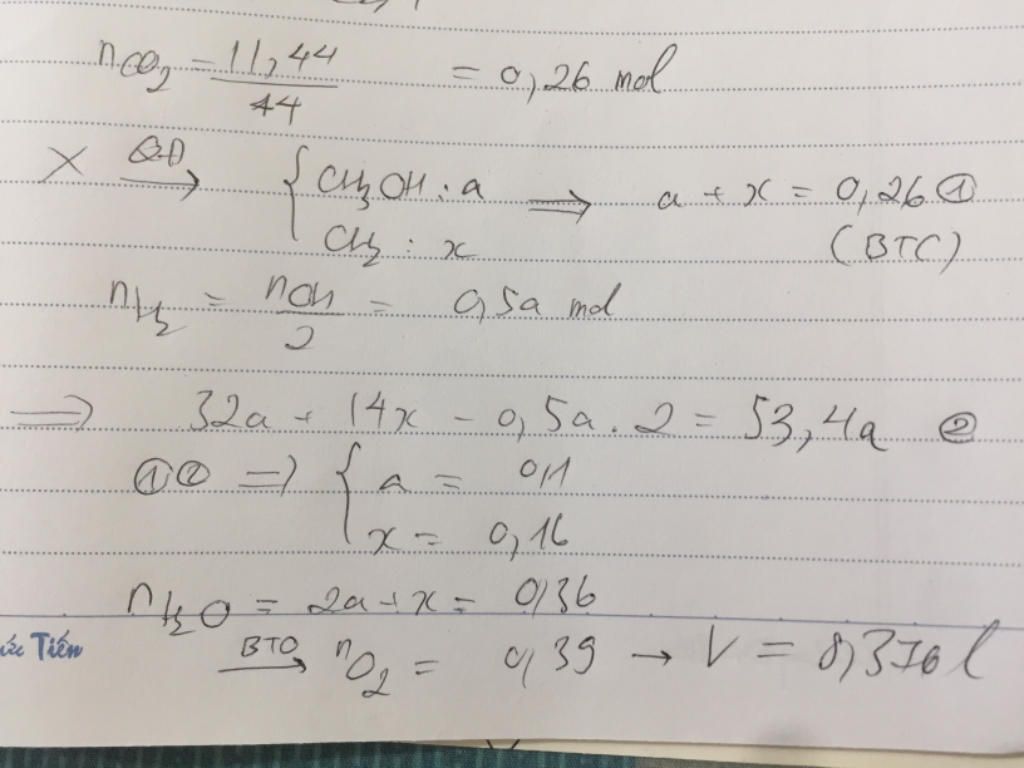 nCO₂ = 11,44/44 = 0,26 mol
X QĐ→ { CH₃OH : a ⇒ a + x = 0,26 ①
CH₂ : x (BTC)
nH₂ = nOH/2 = 0,5a mol
⇒ 32a + 14x - 0,5a.2 = 53,4a ②
①② ⇒ { a = 0,1
x = 0,16
nH₂O = 2a+x = 0,36
Tiến BTO→ nO₂ = 0,39 → V = 8,376 l